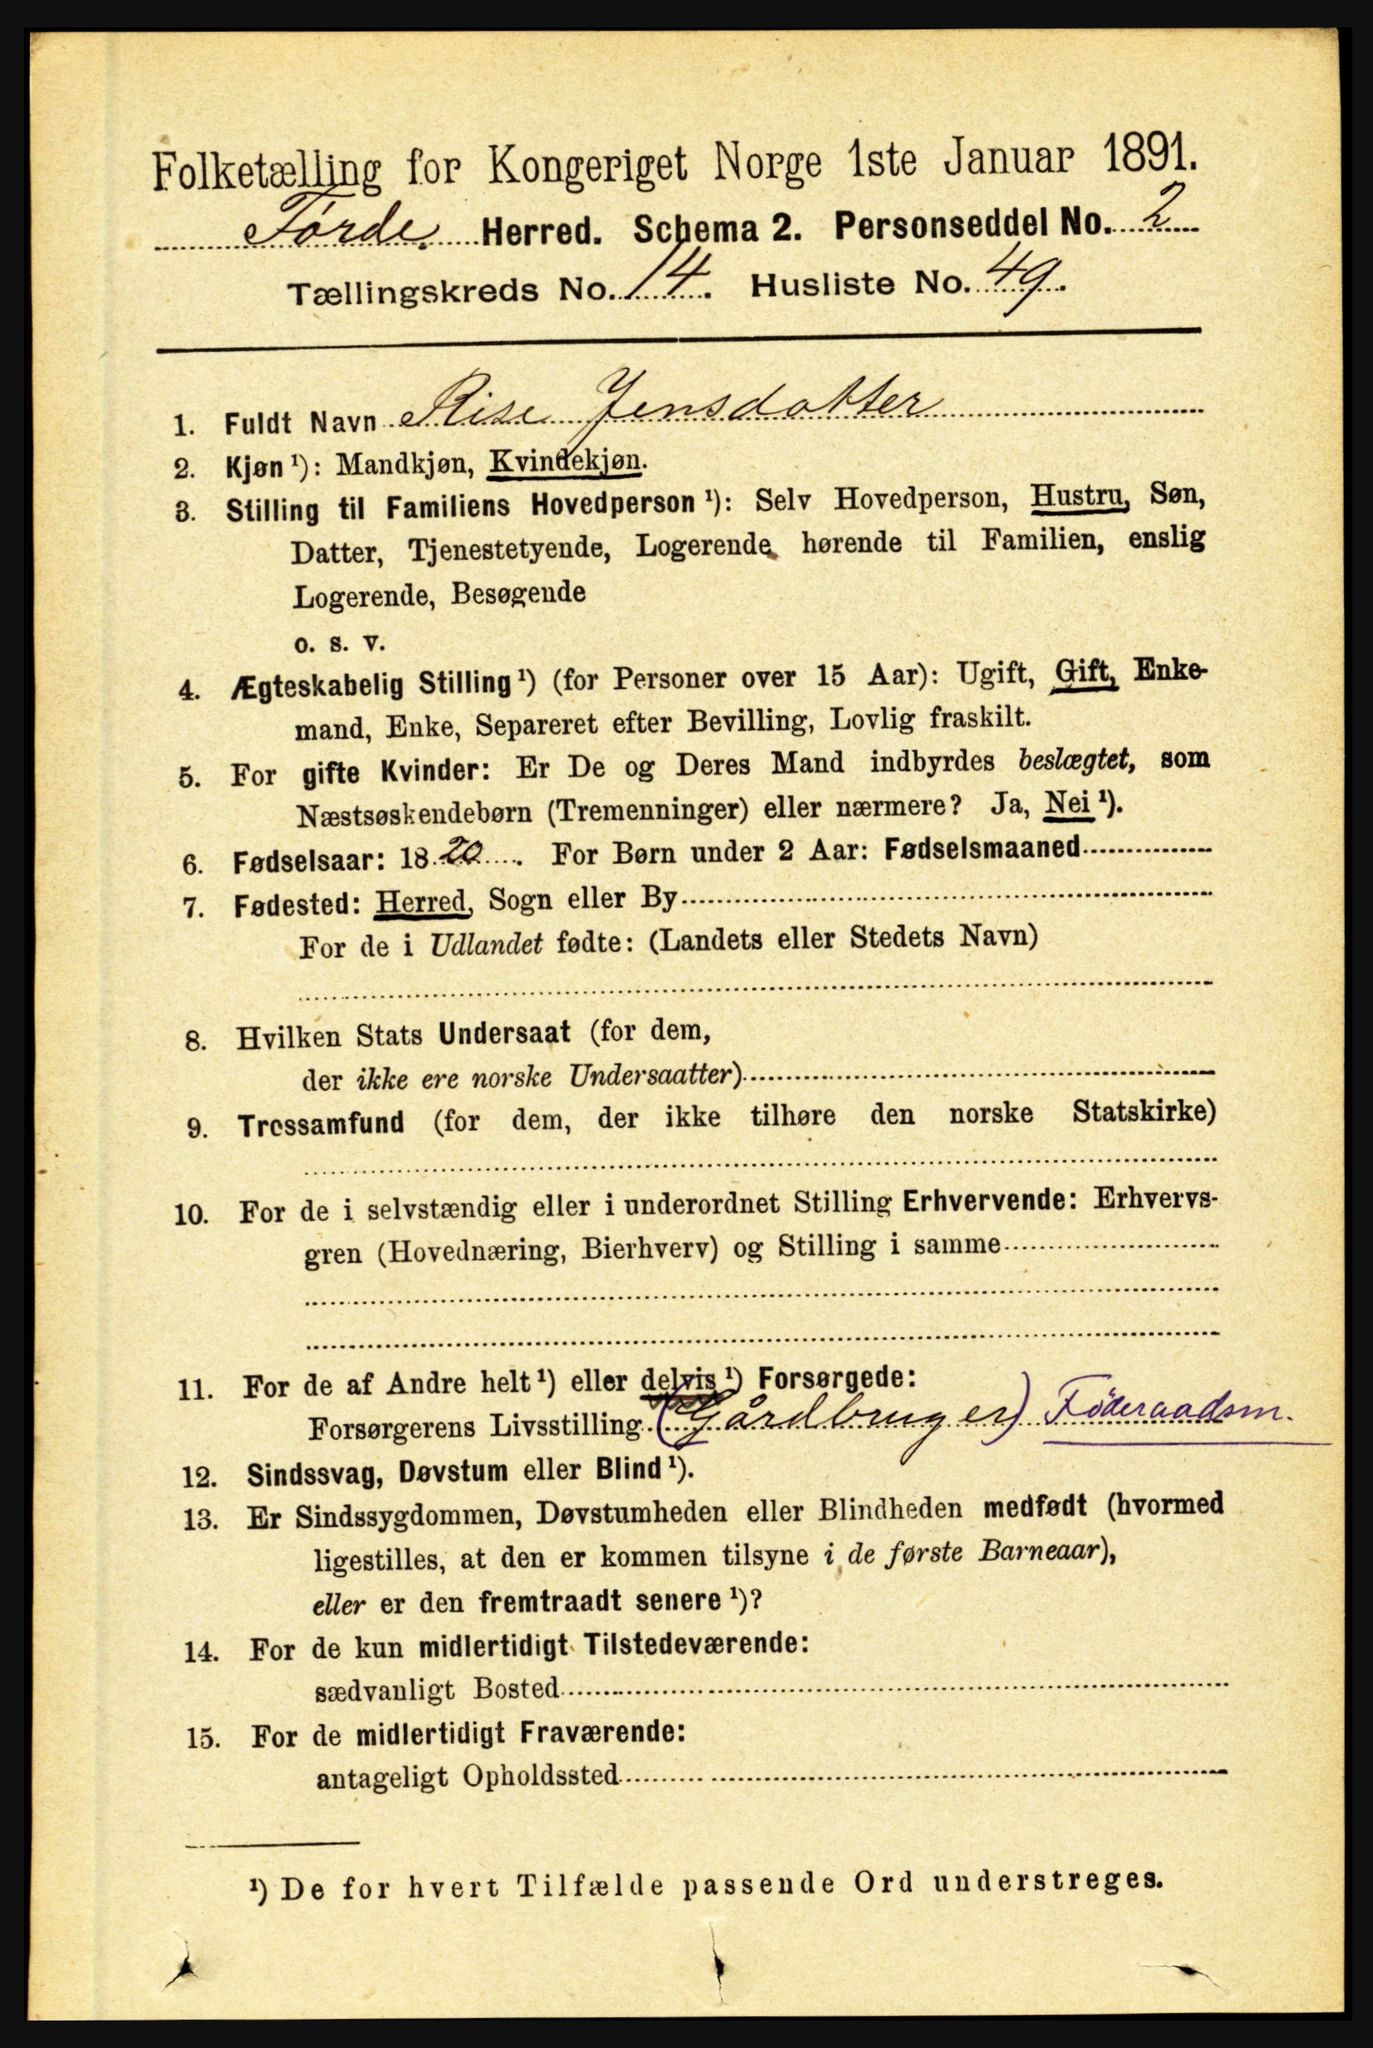 Folketælling for Kongeriget Norge 1ste Januar 1891.
Førde. Herred. Schema 2. Personseddel No. 2
Tællingskreds No. 14. Husliste No. 49.
1. Fuldt Navn Rise Jensdatter
2. Kjøn ¹): Mandkjøn, Kvindekjøn.
3. Stilling til Familiens Hovedperson ¹): Selv Hovedperson, Hustru, Søn,
Datter, Tjenestetyende, Logerende hørende til Familien, enslig
Logerende, Besøgende
o. s. v.
4. Ægteskabelig Stilling ¹) (for Personer over 15 Aar): Ugift, Gift, Enke-
mand, Enke, Separeret efter Bevilling, Lovlig fraskilt.
5. For gifte Kvinder: Er De og Deres Mand indbyrdes beslægtet, som
Næstsøskendebørn (Tremenninger) eller nærmere? Ja, Nei ¹).
6. Fødselsaar: 1820. For Børn under 2 Aar: Fødselsmaaned
7. Fødested: Herred, Sogn eller By
For de i Udlandet fødte: (Landets eller Stedets Navn)
8. Hvilken Stats Undersaat (for dem,
der ikke ere norske Undersaatter)
9. Trossamfund (for dem, der ikke tilhøre den norske Statskirke)
10. For de i selvstændig eller i underordnet Stilling Erhvervende: Erhvervs-
gren (Hovednæring, Bierhverv) og Stilling i samme
11. For de af Andre helt ¹) eller delvis ¹) Forsørgede:
Forsørgerens Livsstilling (Gårdbruger) Föderaadsm.
12. Sindssvag, Døvstum eller Blind ¹).
13. Er Sindssygdommen, Døvstumheden eller Blindheden medfødt (hvormed
ligestilles, at den er kommen tilsyne i de første Barneaar),
eller er den fremtraadt senere ¹)?
14. For de kun midlertidigt Tilstedeværende:
sædvanligt Bosted
15. For de midlertidigt Fraværende:
antageligt Opholdssted
¹) De for hvert Tilfælde passende Ord understreges.